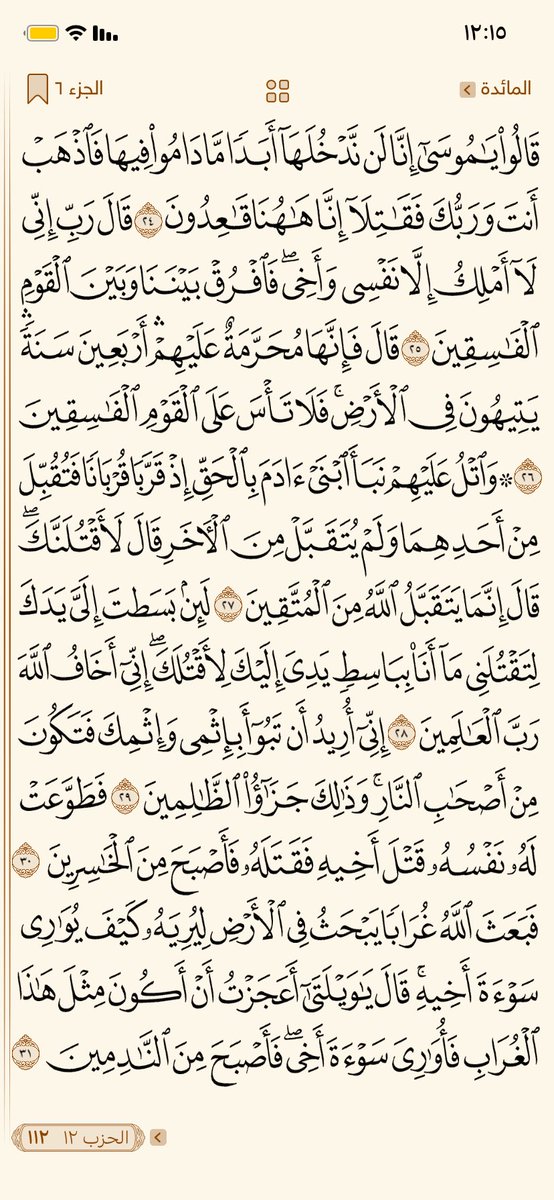 ١٢:١٥
المائدة
الجزء ٦
قَالُوا۟ يَـٰمُوسَىٰٓ إِنَّا لَن نَّدْخُلَهَآ أَبَدًا مَّا دَامُوا۟ فِيهَا فَٱذْهَبْ
أَنتَ وَرَبُّكَ فَقَـٰتِلَآ إِنَّا هَـٰهُنَا قَـٰعِدُونَ ٢٤ قَالَ رَبِّ إِنِّى
لَآ أَمْلِكُ إِلَّا نَفْسِى وَأَخِى ۖ فَٱفْرُقْ بَيْنَنَا وَبَيْنَ ٱلْقَوْمِ
ٱلْفَـٰسِقِينَ ٢٥ قَالَ فَإِنَّهَا مُحَرَّمَةٌ عَلَيْهِمْ ۛ أَرْبَعِينَ سَنَةً ۛ
يَتِيهُونَ فِى ٱلْأَرْضِ ۚ فَلَا تَأْسَ عَلَى ٱلْقَوْمِ ٱلْفَـٰسِقِينَ
٢٦ ۞ وَٱتْلُ عَلَيْهِمْ نَبَأَ ٱبْنَىْ ءَادَمَ بِٱلْحَقِّ إِذْ قَرَّبَا قُرْبَانًا فَتُقُبِّلَ
مِنْ أَحَدِهِمَا وَلَمْ يُتَقَبَّلْ مِنَ ٱلْـَٔاخَرِ قَالَ لَأَقْتُلَنَّكَ ۖ
قَالَ إِنَّمَا يَتَقَبَّلُ ٱللَّهُ مِنَ ٱلْمُتَّقِينَ ٢٧ لَئِنۢ بَسَطتَ إِلَىَّ يَدَكَ
لِتَقْتُلَنِى مَآ أَنَا۠ بِبَاسِطٍ يَدِىَ إِلَيْكَ لِأَقْتُلَكَ ۖ إِنِّىٓ أَخَافُ ٱللَّهَ
رَبَّ ٱلْعَـٰلَمِينَ ٢٨ إِنِّىٓ أُرِيدُ أَن تَبُوٓأَ بِإِثْمِى وَإِثْمِكَ فَتَكُونَ
مِنْ أَصْحَـٰبِ ٱلنَّارِ ۚ وَذَٰلِكَ جَزَٰٓؤُا۟ ٱلظَّـٰلِمِينَ ٢٩ فَطَوَّعَتْ
لَهُۥ نَفْسُهُۥ قَتْلَ أَخِيهِ فَقَتَلَهُۥ فَأَصْبَحَ مِنَ ٱلْخَـٰسِرِينَ ٣٠
فَبَعَثَ ٱللَّهُ غُرَابًا يَبْحَثُ فِى ٱلْأَرْضِ لِيُرِيَهُۥ كَيْفَ يُوَٰرِى
سَوْءَةَ أَخِيهِ ۚ قَالَ يَـٰوَيْلَتَىٰٓ أَعَجَزْتُ أَنْ أَكُونَ مِثْلَ هَـٰذَا
ٱلْغُرَابِ فَأُوَٰرِىَ سَوْءَةَ أَخِى ۖ فَأَصْبَحَ مِنَ ٱلنَّـٰدِمِينَ ٣١
الحزب ١٢ ١١٢